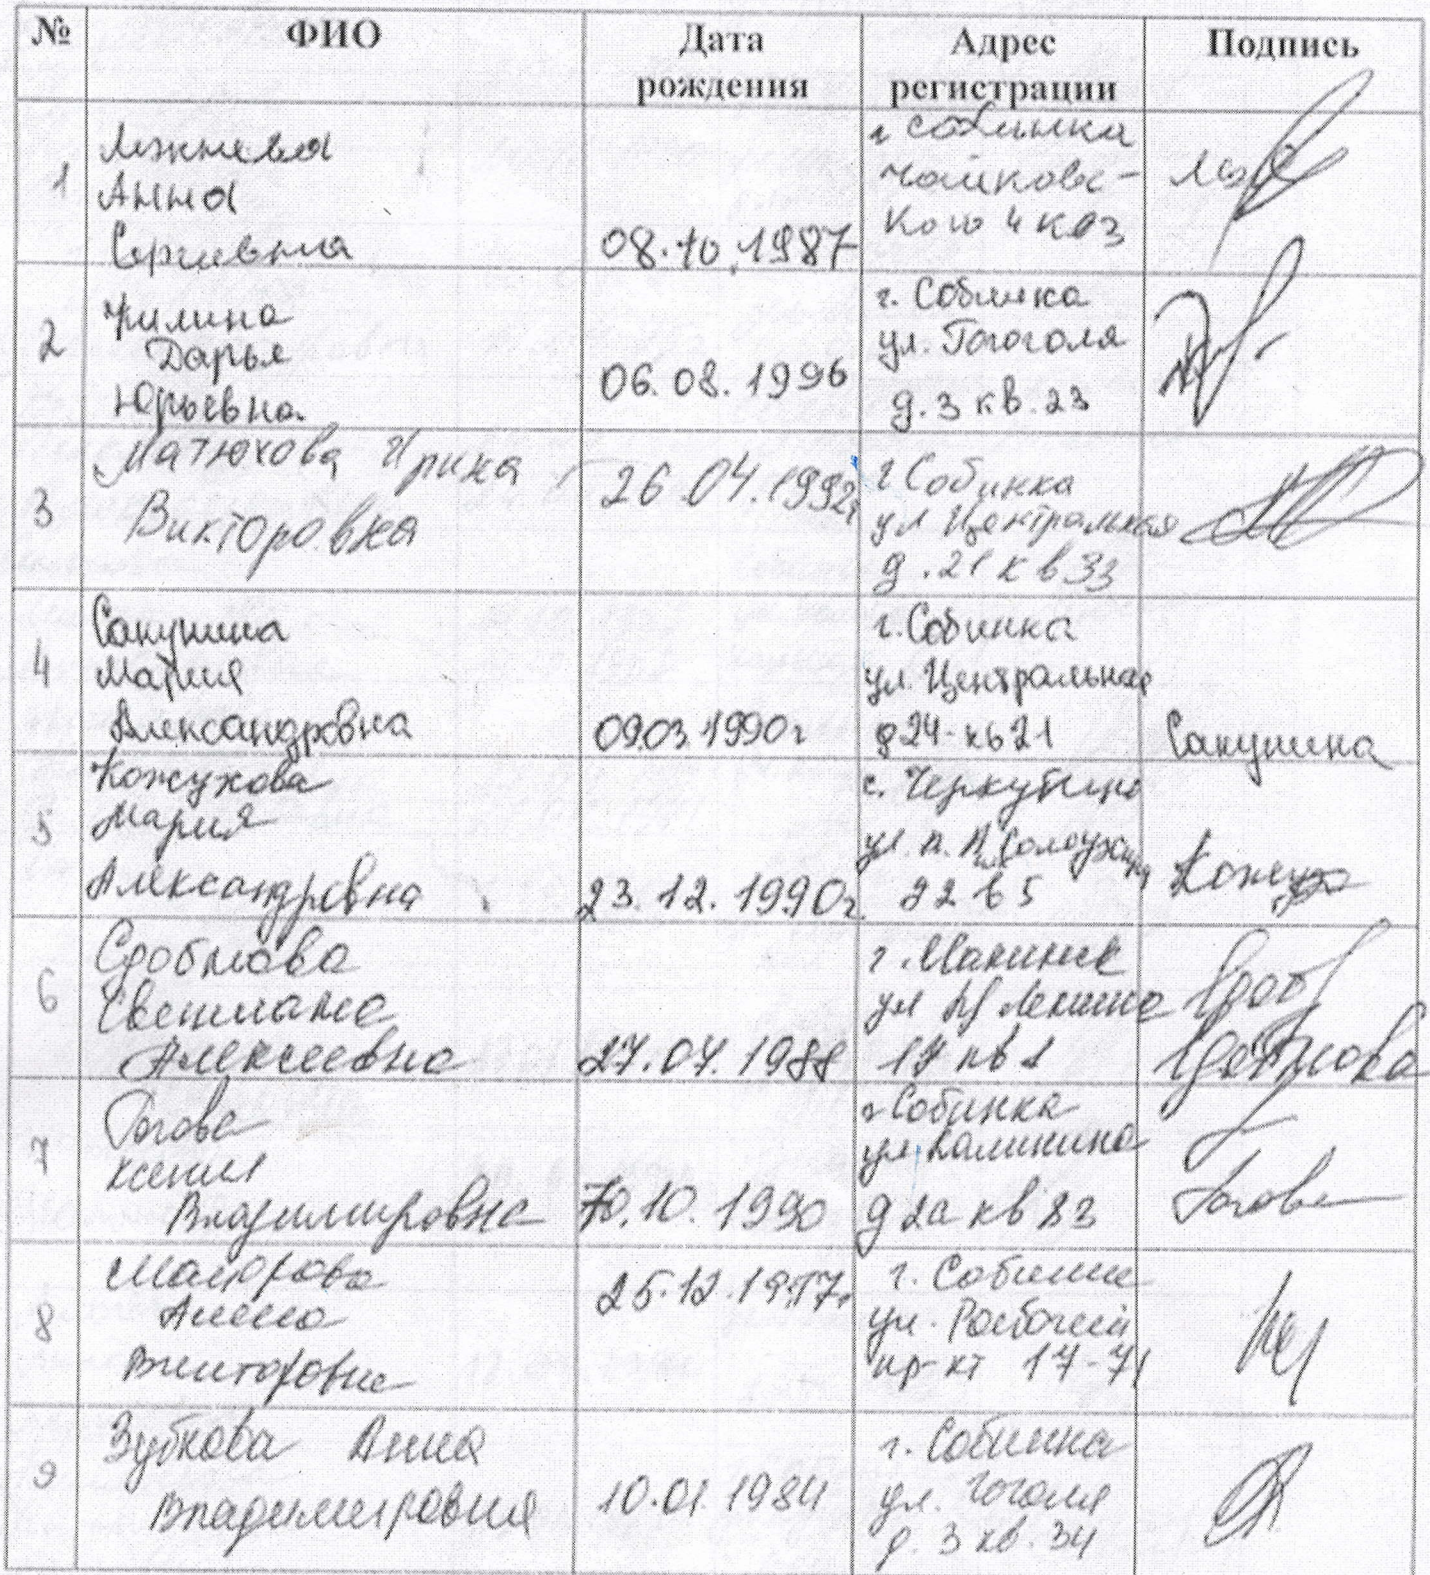 № ФИО Дата рождения Адрес регистрации Подпись
1
Анна
Сергеевна
08.10.1987
г Собинка
Чайковс-
кого 4 кв3
2
Чилина
Дарья
Юрьевна.
06.08.1996
г. Собинка
ул. Гогоголя
д. 3 кв. 23
3
Матюхова Ирина
Викторовна
26.04.1992г
г Собинка
ул Центральная
д. 21 кв 33
4
Санушина
Мария
Александровна
09.03.1990г
г. Собинка
ул. Центральная
д 24 - кв 21
Санушина
5
Кожухова
Мария
Александровна
23.12.1990г.
с. Черкутино
ул.
22 в 5
6
Светлана
Алексеевна
27.07.1988
г.
ул Ленина
17 кв 1
7
Гогова
Ксения
Владимировна
10.10.1990
г Собинка
ул Калинина
д 2а кв 83
Гогова
8
Майорова
Алена
Викторовна
25.12.
г. Собинке
ул. Рабочий
пр-кт 17-71
9
Зубкова Анна
Владимировна
10.01.1984
г. Собинка
ул. Гоголя
д. 3 кв. 34